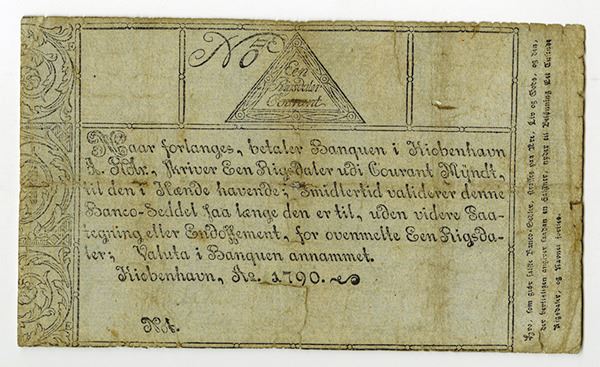 No
Een
Rigsdaler
Courant
Naar forlanges, betaler Banquen i Kiøbenhavn
N. Hobr., skriver Een Rigsdaler udi Courant Myndt,
til den i Hænde havende; Imidlertid validerer denne
Banco-Seddel saa længe den er til, uden videre Paa-
tegning eller Endossement, for ovenmelte Een Rigsda-
ler; Valuta i Banquen annammet.
Kiøbenhavn, Ao. 1790.
Not.
Hvo, som giør falske Banco-Sedler, straffes paa Ære, Liv og Gods, og den,
der bevisligen angiver saadan en Falskner, nyder til Belønning Eet Tusinde
Rigsdaler, og Navnet forties.